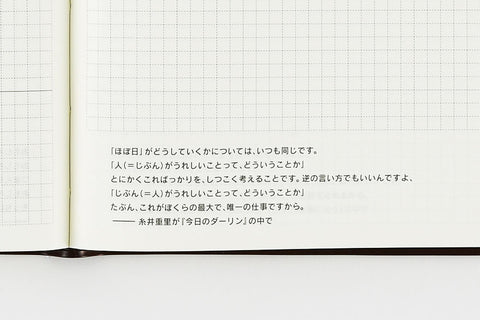 「ほぼ日」がどうしていくかについては、いつも同じです。
「人(＝じぶん)がうれしいことって、どういうことか」
とにかくこればっかりを、しつこく考えることです。逆の言い方でもいいんですよ、
「じぶん(＝人)がうれしいことって、どういうことか」
たぶん、これがぼくらの最大で、唯一の仕事ですから。
—— 糸井重里が『今日のダーリン』の中で